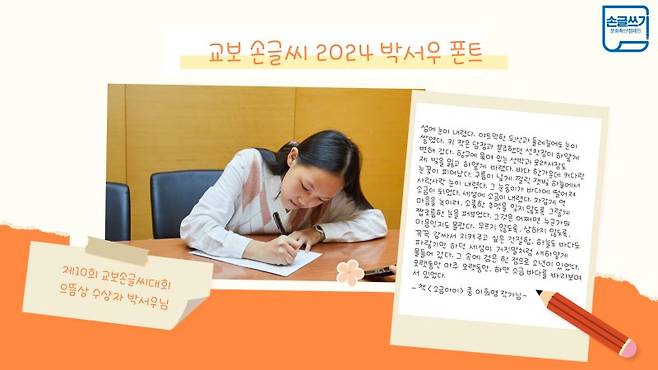 손글쓰기
문화확산캠페인
교보 손글씨 2024 박서우 폰트
섬에 눈이 내렸다. 야트막한 뒷산과 둘레길에도 눈이
쌓였다. 키 작은 담장과 분주했던 선착장이 하얗게
변해 갔다. 항구에 묶여 있는 선박과 모래사장도
제 빛을 잃고 하얗게 바랬다. 바다 한가운데 커다란
눈꽃이 피어났다. 구름이 낮게 깔린 잿빛 하늘에서
사락사락 눈이 내렸다. 그 눈송이가 바다에 떨어져
소금이 되었다. 세상에 소금이 내렸다. 차갑게 언
마음을 녹이려, 소중한 추억을 잊지 않도록 그렇게
짭조름한 눈을 퍼부었다. 그것은 어쩌면 누군가의
마음인지도 몰랐다. 무르지 않도록, 상하지 않도록,
꼭꼭 감싸서 지켜주고 싶은 간절함. 하늘도 바다도
파랗기만 하던 세상이 거짓말처럼 새하얗게
물들어 갔다. 그 속에 검은 한 점으로 소년이 있었다.
오랫동안 아주 오랫동안, 하얀 소금 바다를 바라보며
서 있었다.
- 책 <소금아이> 중 이희영 작가님-
제10회 교보손글씨대회
으뜸상 수상자 박서우님